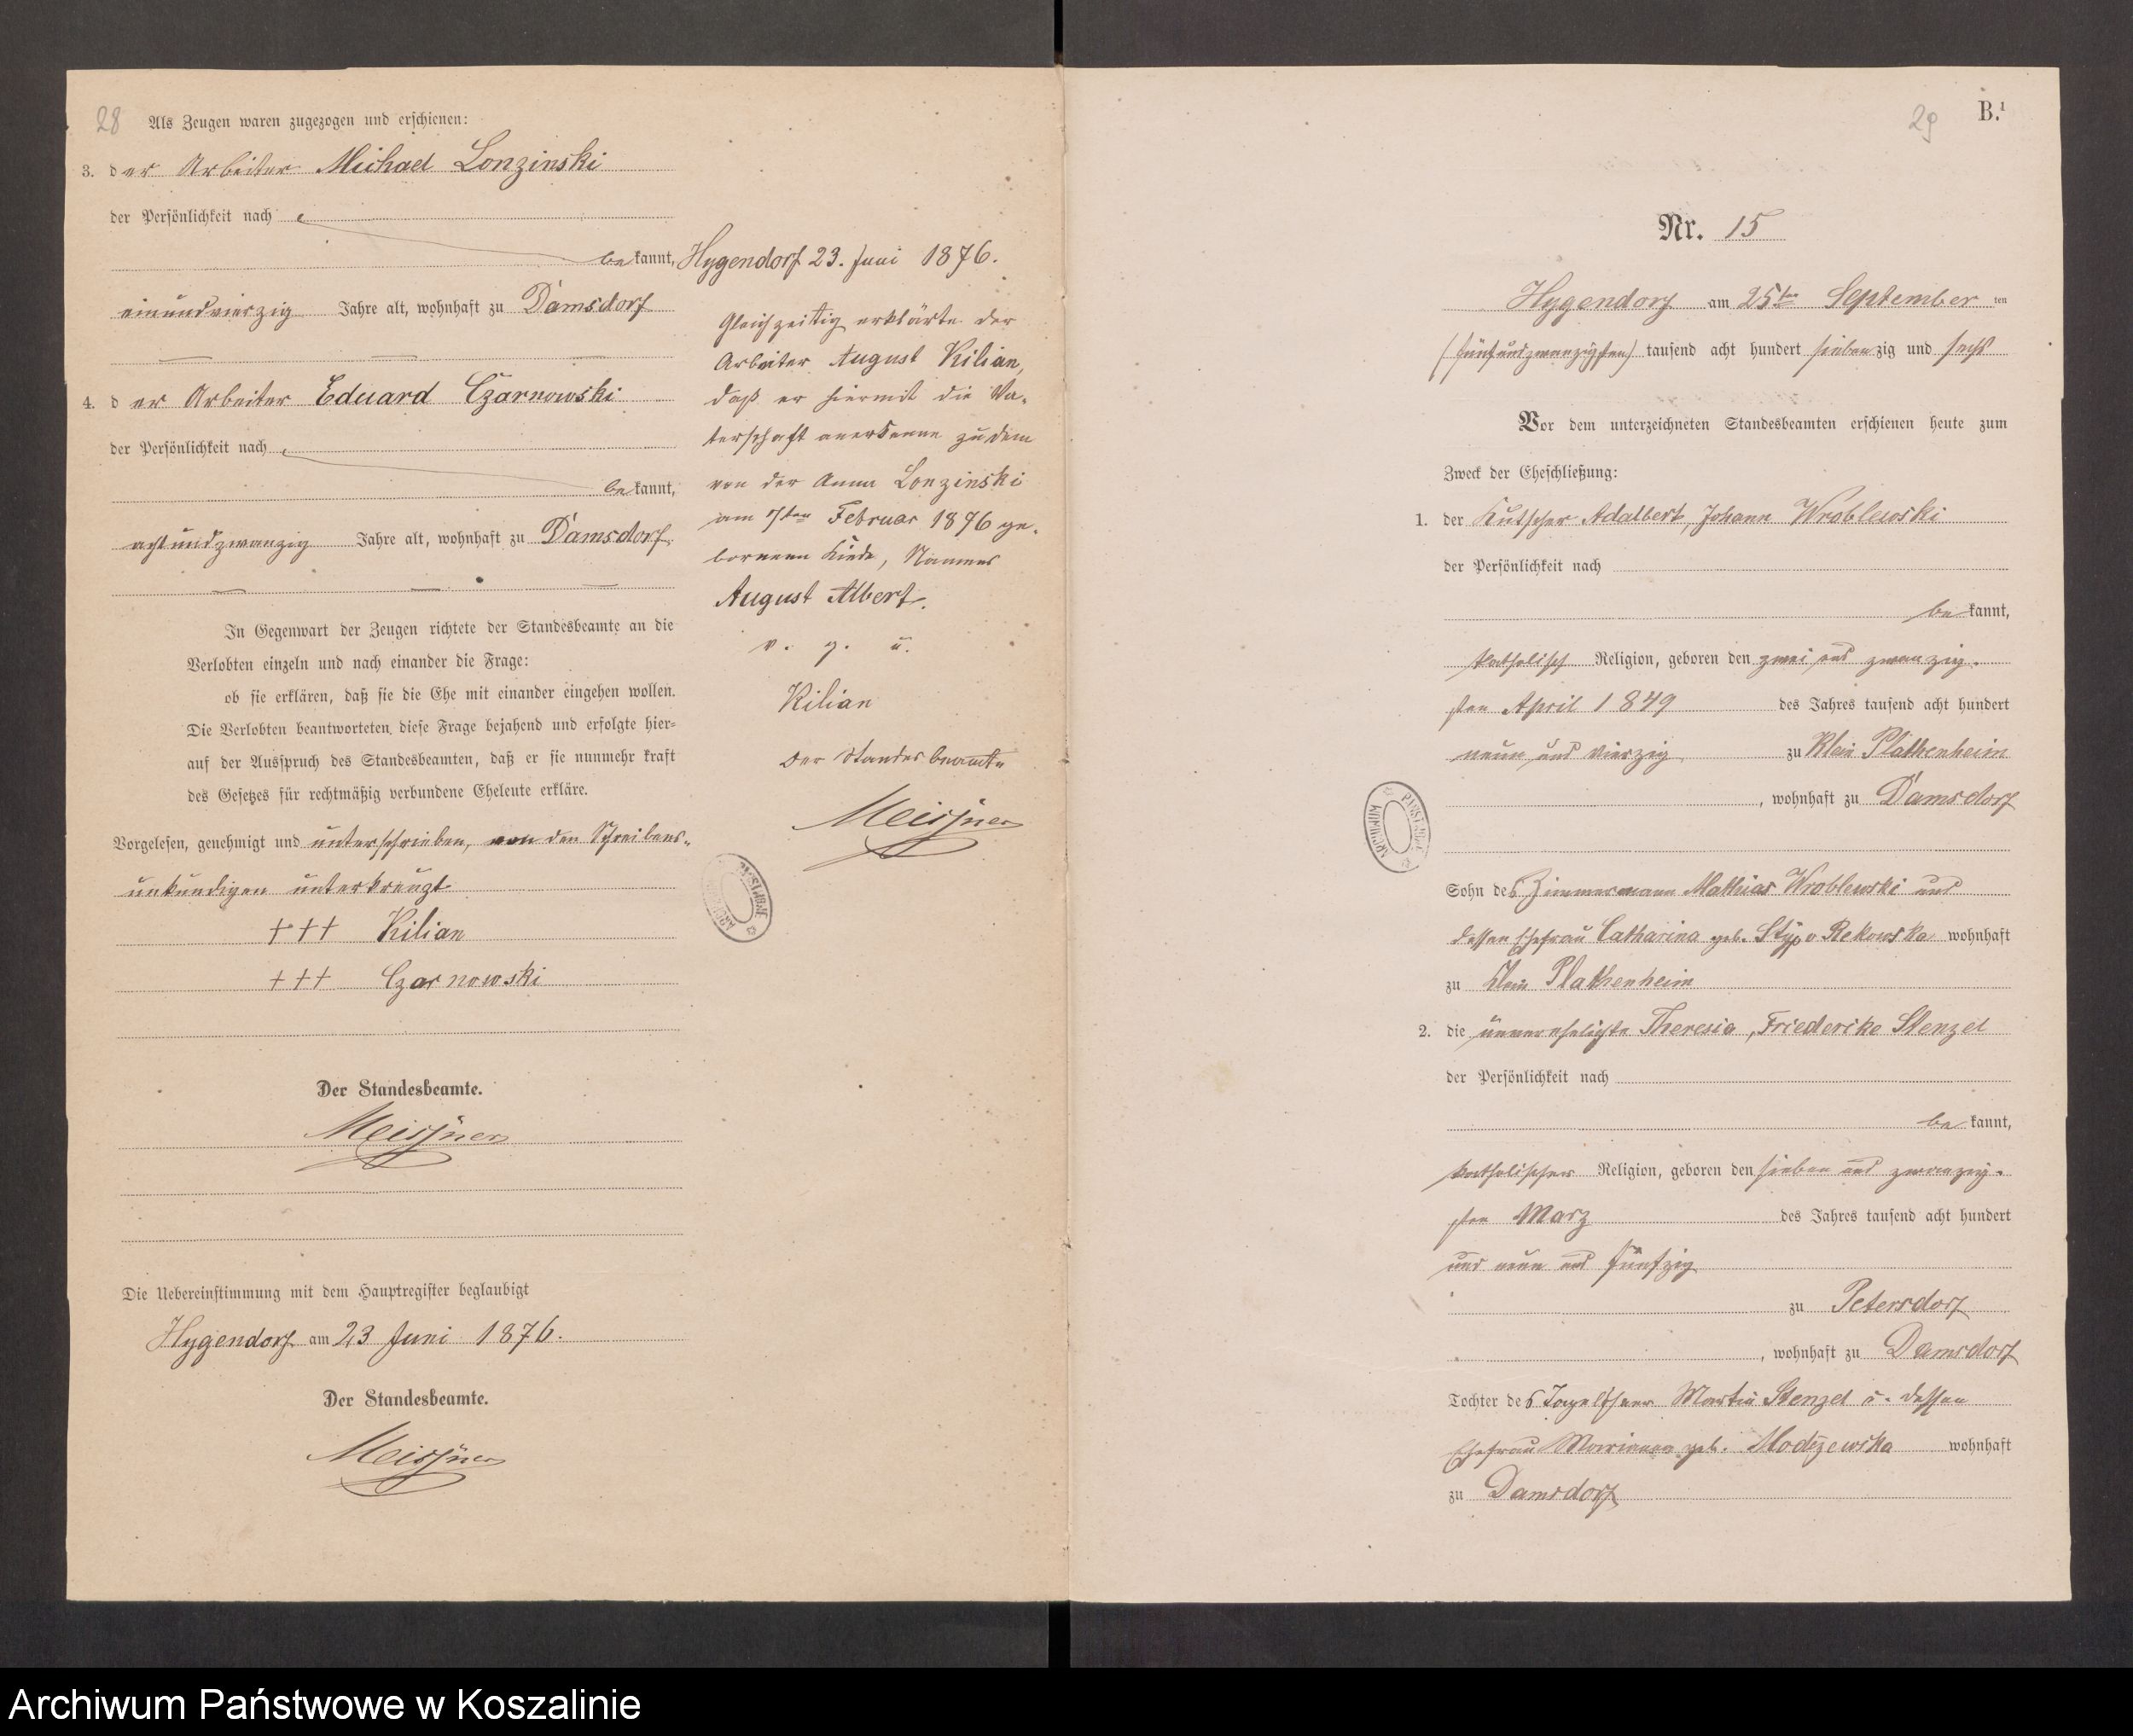 28
Als Zeugen waren zugezogen und erschienen:
3. der Arbeiter Michael Lonzinski
der Persönlichkeit nach
bekannt,
einundvierzig Jahre alt, wohnhaft zu Damsdorf
4. der Arbeiter Eduard Czarnowski
der Persönlichkeit nach
bekannt,
achtundzwanzig Jahre alt, wohnhaft zu Damsdorf
In Gegenwart der Zeugen richtete der Standesbeamte an die
Verlobten einzeln und nach einander die Frage:
ob sie erklären, daß sie die Ehe mit einander eingehen wollen.
Die Verlobten beantworteten diese Frage bejahend und erfolgte hier-
auf der Ausspruch des Standesbeamten, daß er sie nunmehr kraft
des Gesetzes für rechtmäßig verbundene Eheleute erkläre.
Vorgelesen, genehmigt und unterschrieben, von den Schreibens-
unkundigen unterkreuzt
+++ Kilian
+++ Czarnowski
Der Standesbeamte.
Meissner
Die Uebereinstimmung mit dem Hauptregister beglaubigt
Hygendorf am 23 Juni 1876.
Der Standesbeamte.
Meissner
Hygendorf 23. Juni 1876.
Gleichzeittig erklärte der
Arbeiter August Kilian,
daß er hiermit die Va-
terschaft anerkenne zu dem
von der Anna Lonzinski
am 7ten Februar 1876 ge-
bornenen Kinde, Namens
August Albert.
v. g. u.
Kilian
Der Standesbeamte
Meissner
29
B.¹
Nr. 15
Hygendorf am 25ten September ten
(fünfundzwanzigsten) tausend acht hundert siebenzig und sechs
Vor dem unterzeichneten Standesbeamten erschienen heute zum
Zweck der Eheschließung:
1. der Kutscher Adalbert, Johann Wroblewski
der Persönlichkeit nach
bekannt,
katholisch Religion, geboren den zwei und zwanzig-
sten April 1849 des Jahres tausend acht hundert
neun und vierzig zu Klein Plathenheim
, wohnhaft zu Damsdorf
Sohn des Zimmermann Mathias Wroblewski und
dessen Ehefrau Catharina geb. Styp v Rekowska wohnhaft
zu Klein Plathenheim
2. die unverehelichte Theresia, Friederike Stenzel
der Persönlichkeit nach
bekannt,
katholischer Religion, geboren den sieben und zwanzig-
sten Marz des Jahres tausend acht hundert
und neun und fünfzig
zu Petersdorf
, wohnhaft zu Damsdorf
Tochter des Tagelöhner Martin Stenzel u. dessen
Ehefrau Marianna geb. Modszewska wohnhaft
zu Damsdorf
Archiwum Państwowe w Koszalinie